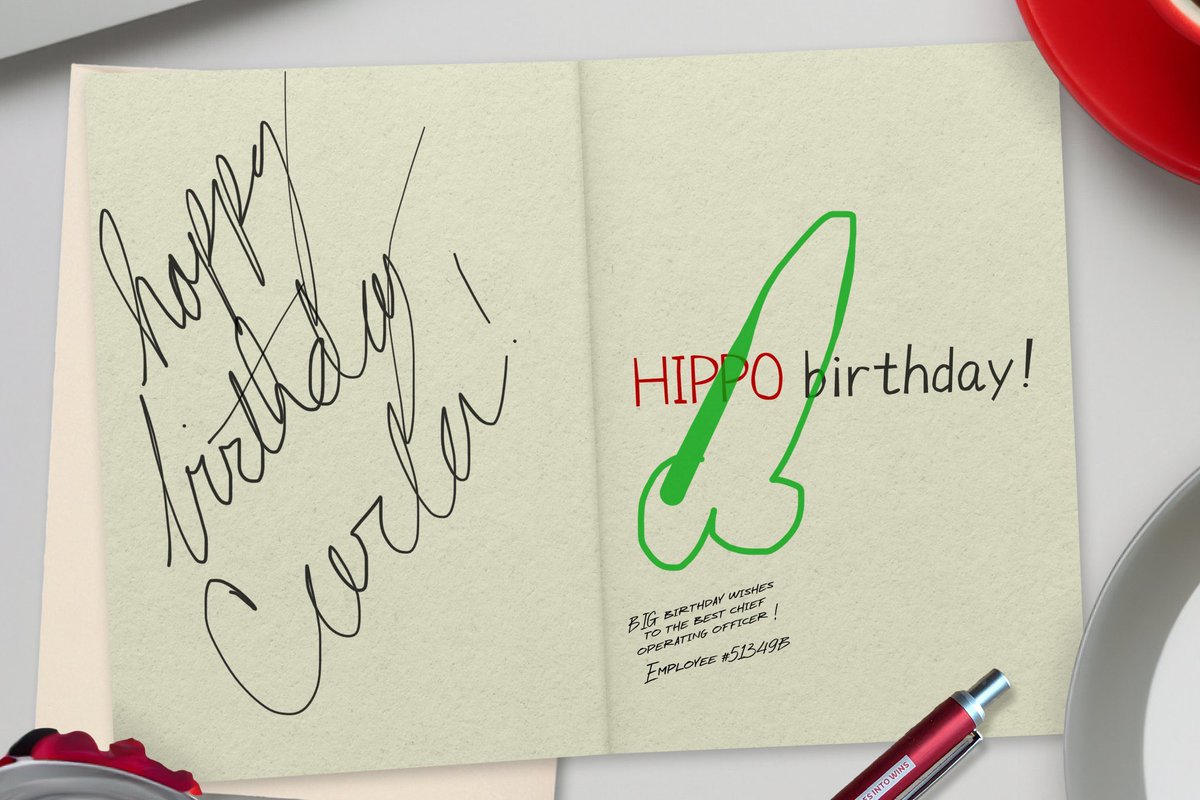 happy
birthday
Curlei!
HIPPO birthday!
BIG BIRTHDAY WISHES
TO THE BEST CHIEF
OPERATING OFFICER!
EMPLOYEE #51349B
ES INTO WINS